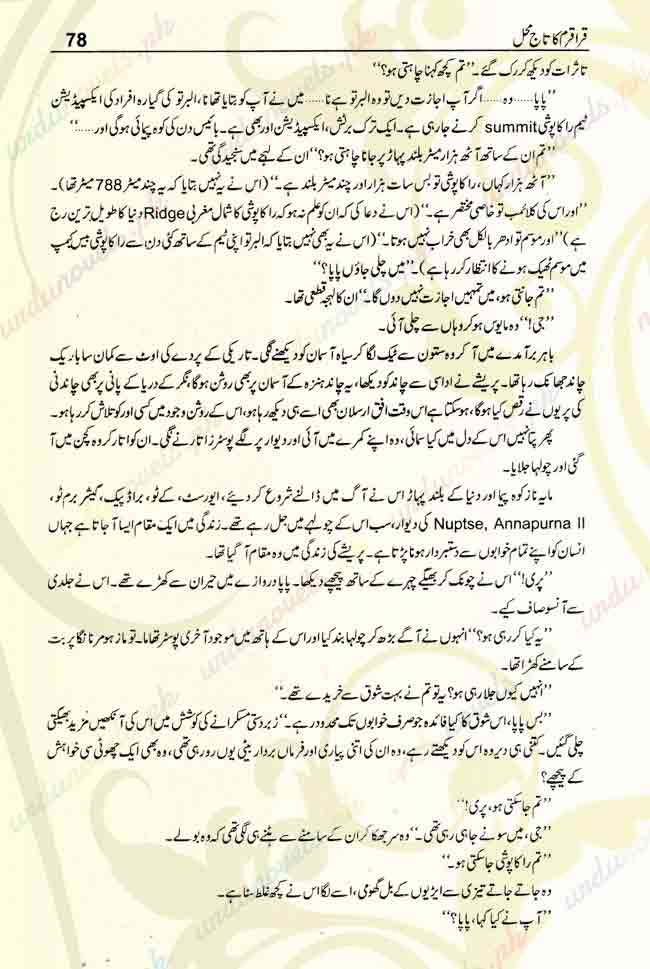 قراقرم کا تاج محل
78
تاثرات کو دیکھ کر رک گئے۔ ’’تم کچھ کہنا چاہتی ہو؟‘‘
’’پاپا...... وہ...... اگر آپ اجازت دیں تو وہ البرتو ہے نا...... میں نے آپ کو بتایا تھا نا، البرتو کی گیارہ افراد کی ایکسپیڈیشن
ٹیم راکا پوشی summit کرنے جا رہی ہے۔ ایک ترک برٹش، ایکسپیڈیشن اور بھی ہے۔ بائیس دن کی کوہ پیمائی ہوگی اور......‘‘
’’تم ان کے ساتھ آٹھ ہزار میٹر بلند پہاڑ پر جانا چاہتی ہو؟‘‘ ان کے لہجے میں سنجیدگی تھی۔
’’آٹھ ہزار کہاں، راکا پوشی تو بس سات ہزار اور چند میٹر بلند ہے۔‘‘ (اس نے یہ نہیں بتایا کہ یہ چند میٹر 788 میٹر تھا)۔
’’اور اس کی کلائمب تو خاصی مختصر ہے۔‘‘ (اس نے دعا کی کہ ان کو علم نہ ہو کہ راکا پوشی کا شمال مغربی Ridge دنیا کا طویل ترین رج
ہے) ’’اور موسم تو ادھر بالکل بھی خراب نہیں ہوتا۔‘‘ (اس نے یہ بھی نہیں بتایا کہ البرتو اپنی ٹیم کے ساتھ کئی دن سے راکا پوشی بیس کیمپ
میں موسم ٹھیک ہونے کا انتظار کر رہا ہے)۔ ’’میں چلی جاؤں پاپا؟‘‘
’’تم جانتی ہو، میں تمہیں اجازت نہیں دوں گا۔‘‘ ان کا لہجہ قطعی تھا۔
’’جی!‘‘ وہ مایوس ہو کر وہاں سے چلی آئی۔
باہر برآمدے میں آ کر وہ ستون سے ٹیک لگا کر سیاہ آسمان کو دیکھنے لگی۔ تاریکی کے پردے کی اوٹ سے کمان سا باریک
چاند جھانک رہا تھا۔ پریشے نے اداسی سے چاند کو دیکھا، یہ چاند ہنزہ کے آسمان پر بھی روشن ہوگا، نگر کے دریا کے پانی پر بھی چاندنی
کی پریوں نے رقص کیا ہوگا، ہو سکتا ہے اس وقت افق ارسلان بھی اسے ہی دیکھ رہا ہو، اس کے روشن وجود میں کسی اور کو تلاش کر رہا ہو۔
پھر پتا نہیں اس کے دل میں کیا سمائی، وہ اپنے کمرے میں آئی اور دیوار پر لگے پوسٹرز اتارنے لگی۔ ان کو اتار کر وہ کچن میں آ
گئی اور چولہا جلایا۔
مایہ ناز کوہ پیما اور دنیا کے بلند پہاڑ اس نے آگ میں ڈالنے شروع کر دیئے، ایورسٹ، کے ٹو، براڈ پیک، گیشر برم ٹو،
Nuptse, Annapurna II کی دیوار، سب اس کے چولہے میں جل رہے تھے۔ زندگی میں ایک مقام ایسا آ جاتا ہے جہاں
انسان کو اپنے تمام خوابوں سے دستبردار ہونا پڑتا ہے۔ پریشے کی زندگی میں وہ مقام آ گیا تھا۔
’’پری!‘‘ اس نے چونک کر بھیگے چہرے کے ساتھ پیچھے دیکھا۔ پاپا دروازے میں حیران سے کھڑے تھے۔ اس نے جلدی
سے آنسو صاف کیے۔
’’یہ کیا کر رہی ہو؟‘‘ انہوں نے آگے بڑھ کر چولہا بند کیا اور اس کے ہاتھ میں موجود آخری پوسٹر تھاما۔ تو ماز ہومر نانگا پربت
کے سامنے کھڑا تھا۔
’’انہیں کیوں جلا رہی ہو؟ یہ تو تم نے بہت شوق سے خریدے تھے۔‘‘
’’بس پاپا، اس شوق کا کیا فائدہ جو صرف خوابوں تک محدود رہے۔‘‘ زبردستی مسکرانے کی کوشش میں اس کی آنکھیں مزید بھیگتی
چلی گئیں۔ کتنی ہی دیر وہ اس کو دیکھتے رہے، وہ ان کی اتنی پیاری اور فرماں بردار بیٹی یوں رو رہی تھی، وہ بھی ایک چھوٹی سی خواہش
کے پیچھے؟
’’تم جا سکتی ہو، پری!‘‘
’’جی، میں سونے جا ہی رہی تھی۔‘‘ وہ سر جھکا کر ان کے سامنے سے ہٹنے ہی لگی تھی کہ وہ بولے۔
’’تم راکا پوشی جا سکتی ہو۔‘‘
وہ جاتے جاتے تیزی سے ایڑیوں کے بل گھومی، اسے لگا اس نے کچھ غلط سنا ہے۔
’’آپ نے کیا کہا، پاپا؟‘‘